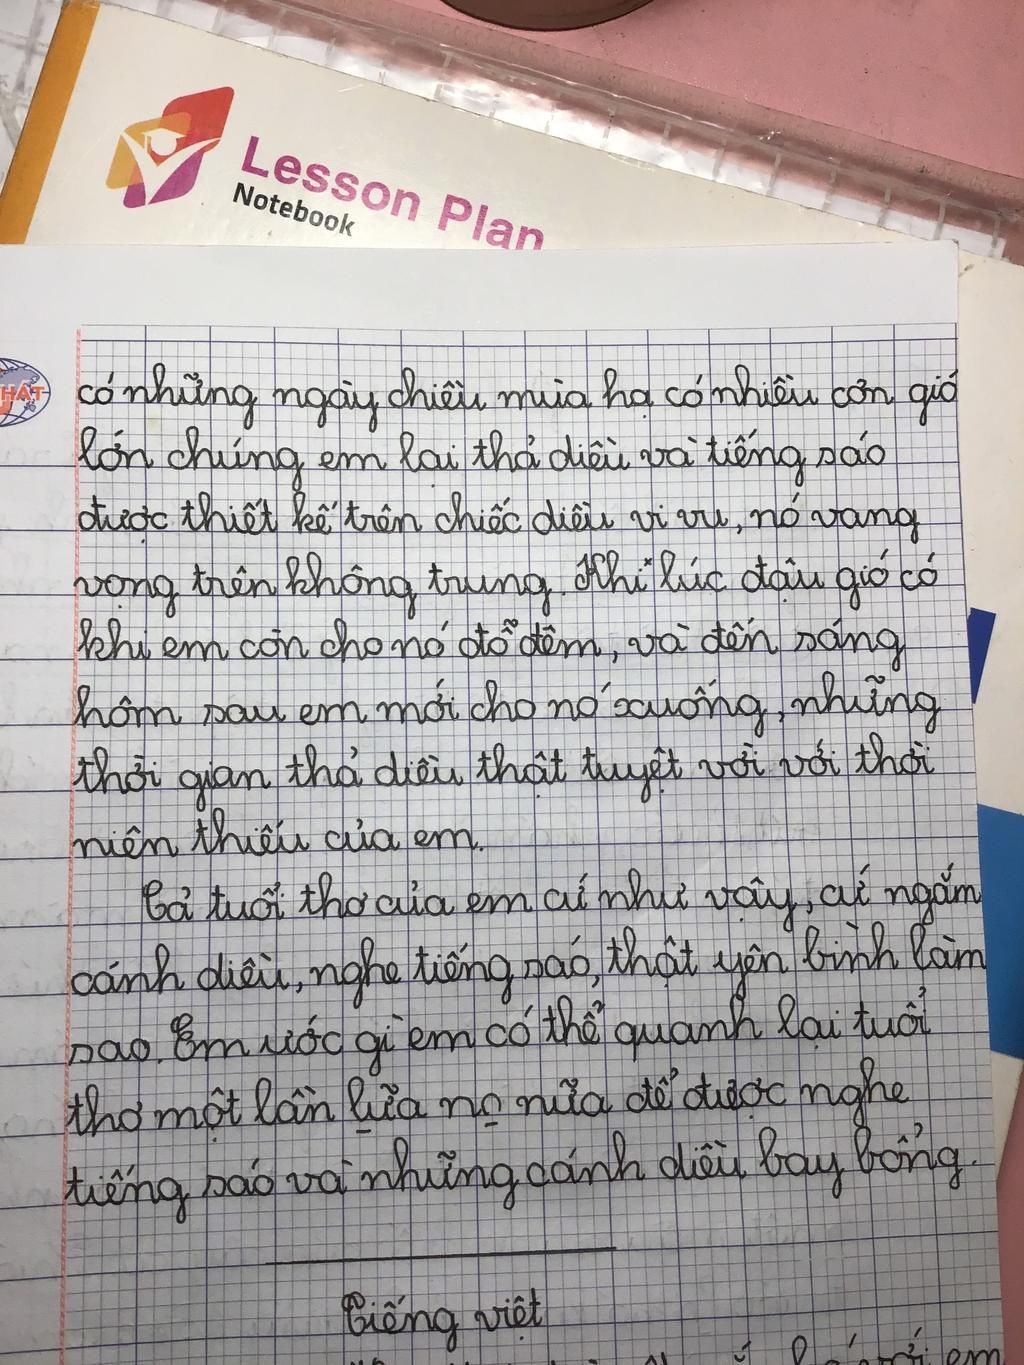 Lesson Plan
Notebook
HẤT
có những ngày chiều mùa hạ có nhiều cơn gió
lớn chúng em lại thả diều và tiếng sáo
được thiết kế trên chiếc diều vi vu, nó vang
vọng trên không trung. Khi lúc đậu gió có
khi em còn cho nó đỗ đêm, và đến sáng
hôm sau em mới cho nó xuống, những
thời gian thả diều thật tuyệt vời với thời
niên thiếu của em.
Cả tuổi thơ của em cứ như vậy, cứ ngắm
cánh diều, nghe tiếng sáo, thật yên bình làm
sao. Em ước gì em có thể quanh lại tuổi
thơ một lần lữa nọ nữa để được nghe
tiếng sáo và những cánh diều bay bổng.
Tiếng việt
em